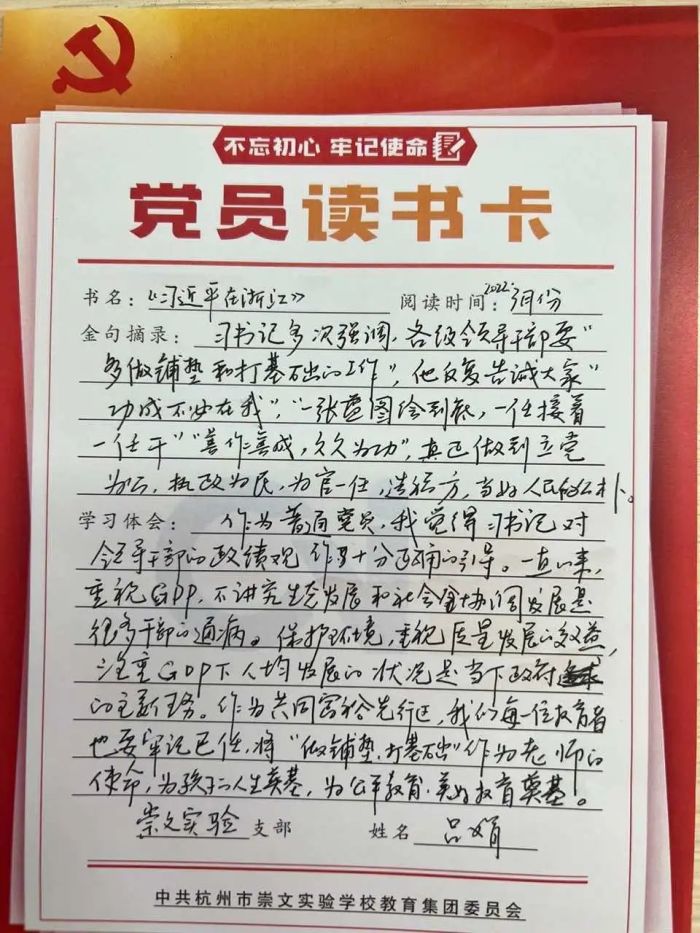 不忘初心 牢记使命
党员读书卡
书名：《习近平在浙江》 阅读时间：2022.3月份
金句摘录： 习书记多次强调，各级领导干部要“
多做铺垫和打基础的工作”，他反复告诫大家“
功成不必在我”，“一张蓝图绘到底，一任接着
一任干”“善作善成，久久为功”，真正做到立党
为公，执政为民，为官一任，造福一方，当好人民的公仆。
学习体会： 作为普通党员，我觉得习书记对
领导干部的政绩观作了十分正确的引导。一直以来，
重视GDP，不讲究生态发展和社会全协调发展是
很多干部的通病。保护环境，重视质量发展的效益，
注重GDP下人均发展的状况是当下政府
的主要任务。作为共同富裕先行区，我们每一位教育者
也要牢记己任，将“做铺垫、打基础”作为老师的
使命，为孩子的人生奠基，为公平教育、美好教育奠基。
崇文实验 支部 姓名 吕娟
中共杭州市崇文实验学校教育集团委员会